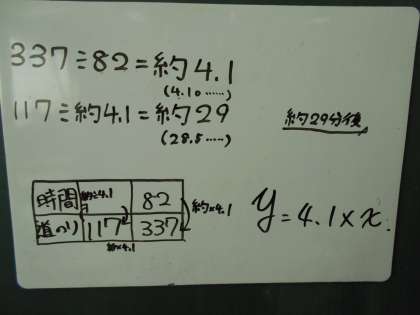 337÷82=約4.1
(4.10……)
117÷約4.1=約29
(28.5……)
約29分後
時間 約÷4.1 82
道のり 117 337
約×4.1
約×4.1
y=4.1×x.